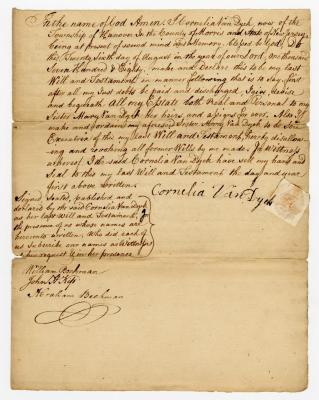 In the name of God Amen. I Cornelia Van Dyck, now of the
Township of Hanover In the County of Morris and State of New Jersey
being at present of sound mind and Memory, blessed be God, Do
this Twenty Sixth day of August in the year of our Lord, one thousand
Seven Hundred & Eighty, make and Declare this to be my last
Will and Testament in manner following that is to say, first
after all my Just debts be paid and discharged, I give, devise
and bequeath All my Estate both Real and Personal to my
Sister Mary Van Dyck her heirs, and assigns for ever. Also I
make and ordain my aforesaid Sister Mary Van Dyck to be Sole
Executrix of this my last Will and Testament, hereby disallow-
ing and revoking all former Wills by me made. In Witness
whereof I the said Cornelia Van Dyck have set my hand and
Seal to this my last Will and Testament the day and year
first above written.
Cornelia Van Dyck
Signed Sealed, published and
declared by the said Cornelia Van Dyck
as her last will and Testament, in
the presence of us whose names are
hereunto written, who did each of
us Subscribe our names as Witnesses
at her request & in her presence
William Beekman
John
Abraham Beekman